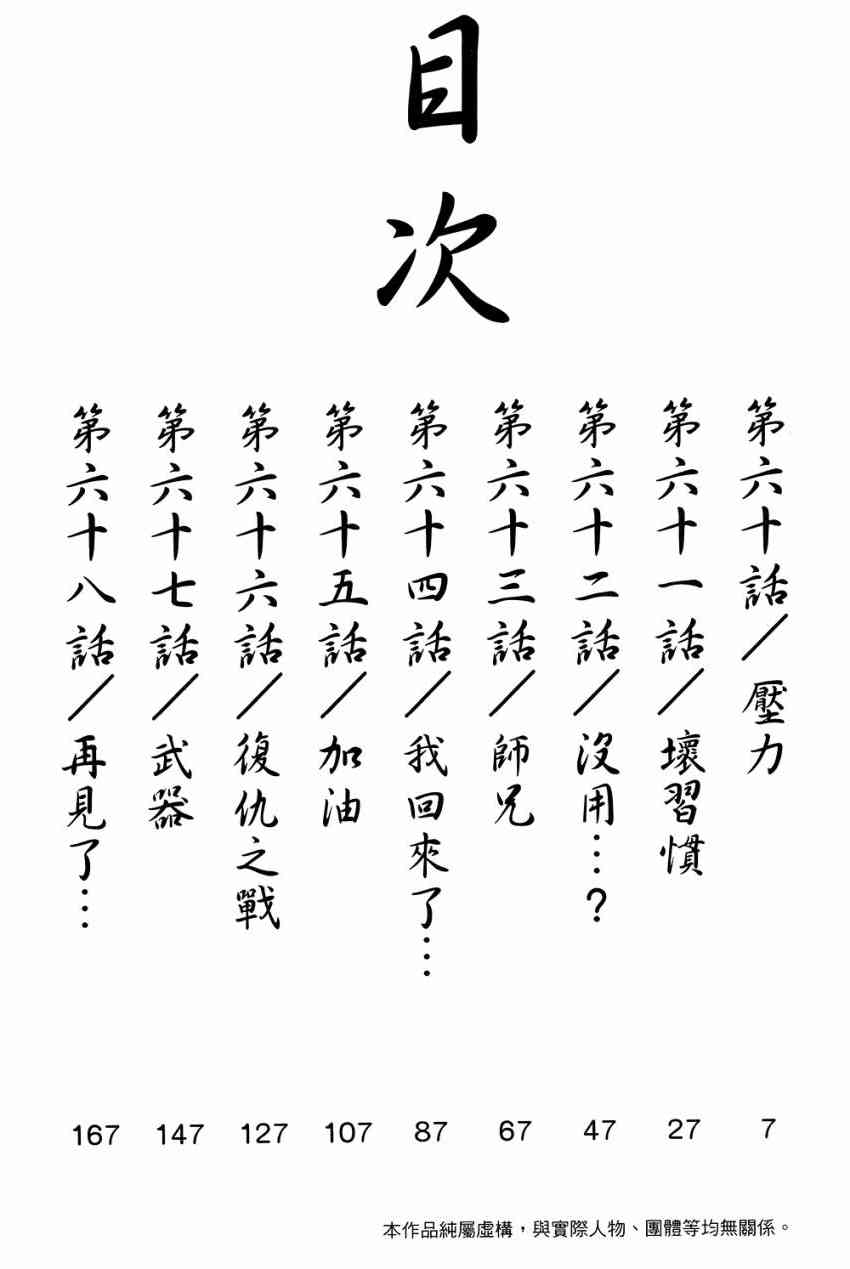 目次
第六十話／壓力 7
第六十一話／壞習慣 27
第六十二話／沒用…? 47
第六十三話／師兄 67
第六十四話／我回來了… 87
第六十五話／加油 107
第六十六話／復仇之戰 127
第六十七話／武器 147
第六十八話／再見了… 167
本作品純屬虛構，與實際人物、團體等均無關係。